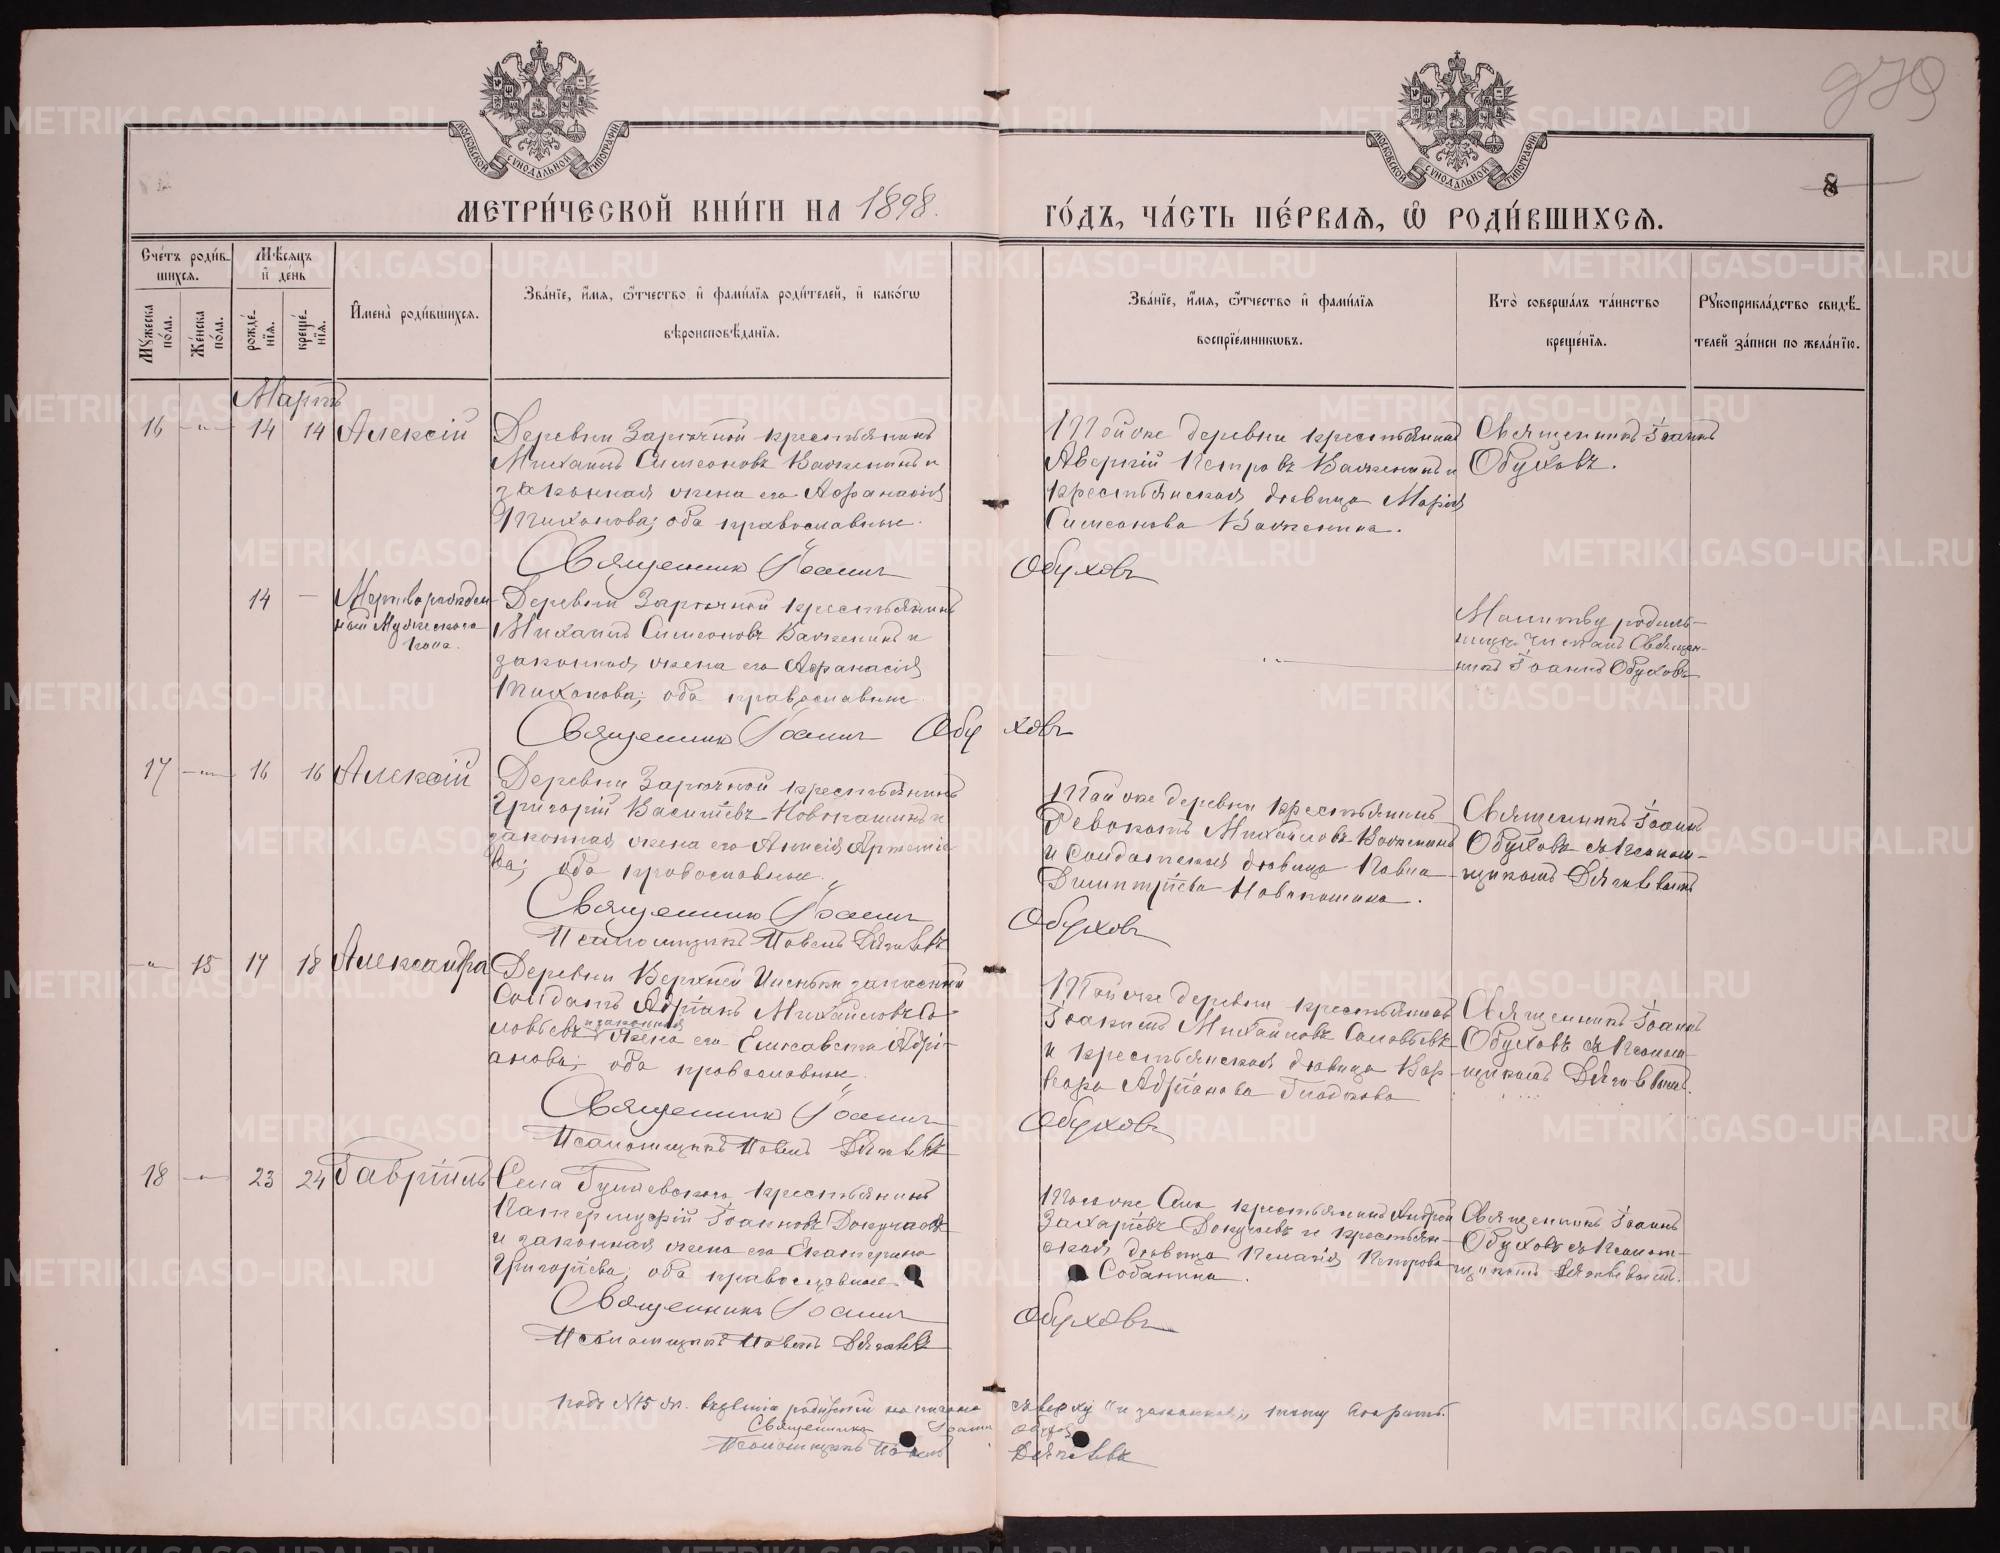 979
8
МОСКОВСКОЙ СѴНОДАЛЬНОЙ ТИПОГРАФІИ
МОСКОВСКОЙ СѴНОДАЛЬНОЙ ТИПОГРАФІИ
МЕТРИ́ЧЕСКОЙ КНИ́ГИ НА 1898.
ГО́ДЪ, ЧА́СТЬ ПЕ́РВАѦ, Ѡ҆ РОДИ́ВШИХСѦ.
Сче́тъ роди́в-
шихсѧ.
Мѣ́сѧцъ
и҆ де́нь
Мꙋ́жеска
по́ла.
Же́нска
по́ла.
рожде́-
нїѧ.
креще́-
нїѧ.
И҆мена̀ роди́вшихсѧ.
Зва́нїе, и҆́мѧ, ѻ҆́тчество и҆ фами́лїѧ роди́телей, и҆ како́гѡ
вѣроисповѣ́данїѧ.
Зва́нїе, и҆́мѧ, ѻ҆́тчество и҆ фами́лїѧ
воспрїе́мникѡвъ.
Кто̀ соверша́лъ та́инство
креще́нїѧ.
Рꙋкоприкла́дство свидѣ́-
телей за́писи по жела́нїю.
Мартъ
16 - 14 14 Алексій
Деревни Заречной крестьянинъ
Михаилъ Симеоновъ Важенинъ и
законная жена его Афанасія
Тихонова; оба православные.
Священникъ Іоаннъ Обуховъ
Той же деревни крестьянинъ
Аверкій Петровъ Важенинъ и
крестьянская дѣвица Марія
Симеонова Важенина.
Священникъ Іоаннъ
Обуховъ.
14 — Мертворожден-
ный Мужескаго
пола.
Деревни Заречной крестьянинъ
Михаилъ Симеоновъ Важенинъ и
законная жена его Афанасія
Тихонова; оба православные.
Священникъ Іоаннъ Обуховъ
Молитву родиль-
ницѣ читалъ Священ-
никъ Іоаннъ Обуховъ
17 - 16 16 Алексій
Деревни Заречной крестьянинъ
Григорій Васильевъ Новокашинъ и
законная жена его Анисія Артеміе-
ва; оба православные.
Священникъ Іоаннъ Обуховъ
Псаломщикъ Павелъ
Той же деревни крестьянинъ
Михайловъ Важенинъ
и солдатская дѣвица Павла
Димитріева Новокашина.
Священникъ Іоаннъ
Обуховъ съ Псалом-
щикомъ
- 15 17 18 Александра
Деревни Верхней запасный
солдатъ Адріанъ Михайловъ Со-
ловьевъ и законная жена его Елисавета Адрі-
анова; оба православные.
Священникъ Іоаннъ Обуховъ
Псаломщикъ Павелъ
Той же деревни крестьянинъ
Іоакимъ Михайловъ Соловьевъ
и крестьянская дѣвица Вар-
вара Адріанова Гладкова
Священникъ Іоаннъ
Обуховъ съ Псалом-
щикомъ
18 - 23 24 Гавріилъ
Села крестьянинъ
Патермуфій Іоанновъ Докучаевъ
и законная жена его Екатерина
Григорьева; оба православные.
Священникъ Іоаннъ Обуховъ
Псаломщикъ Павелъ
Того же Села крестьянинъ Андрей
Захаріевъ Докучаевъ и крестьян-
ская дѣвица Пелагія Петрова
Собанина.
Священникъ Іоаннъ
Обуховъ съ Псалом-
щикомъ
подъ №15 родителей написано сверху "и законная" тому вѣрить.
Священникъ Іоаннъ Обуховъ
Псаломщикъ Павелъ
METRIKI.GASO-URAL.RU